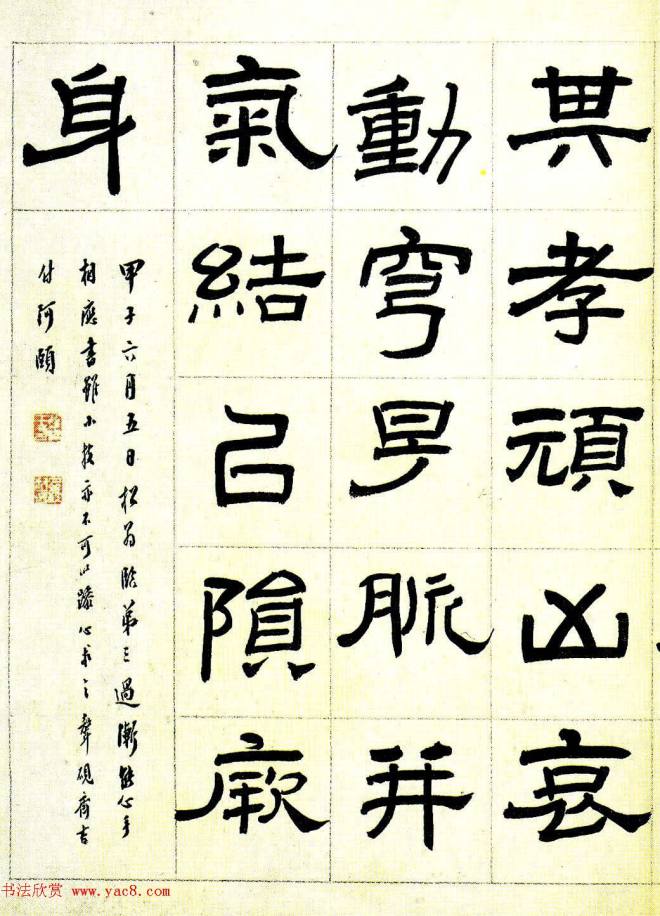 其孝頑凶哀
動穹脈并
氣結㠯隕厥
身
甲子六月五日松翁臨第三過漸能心手
相應書雖小技亦不可以躁心求之聲硯齋
付阿頤
书法欣赏 www.yac8.com